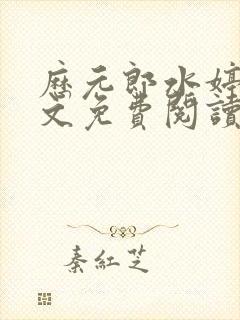 歷元郎水婷
文免費閱讀
秦紅芝